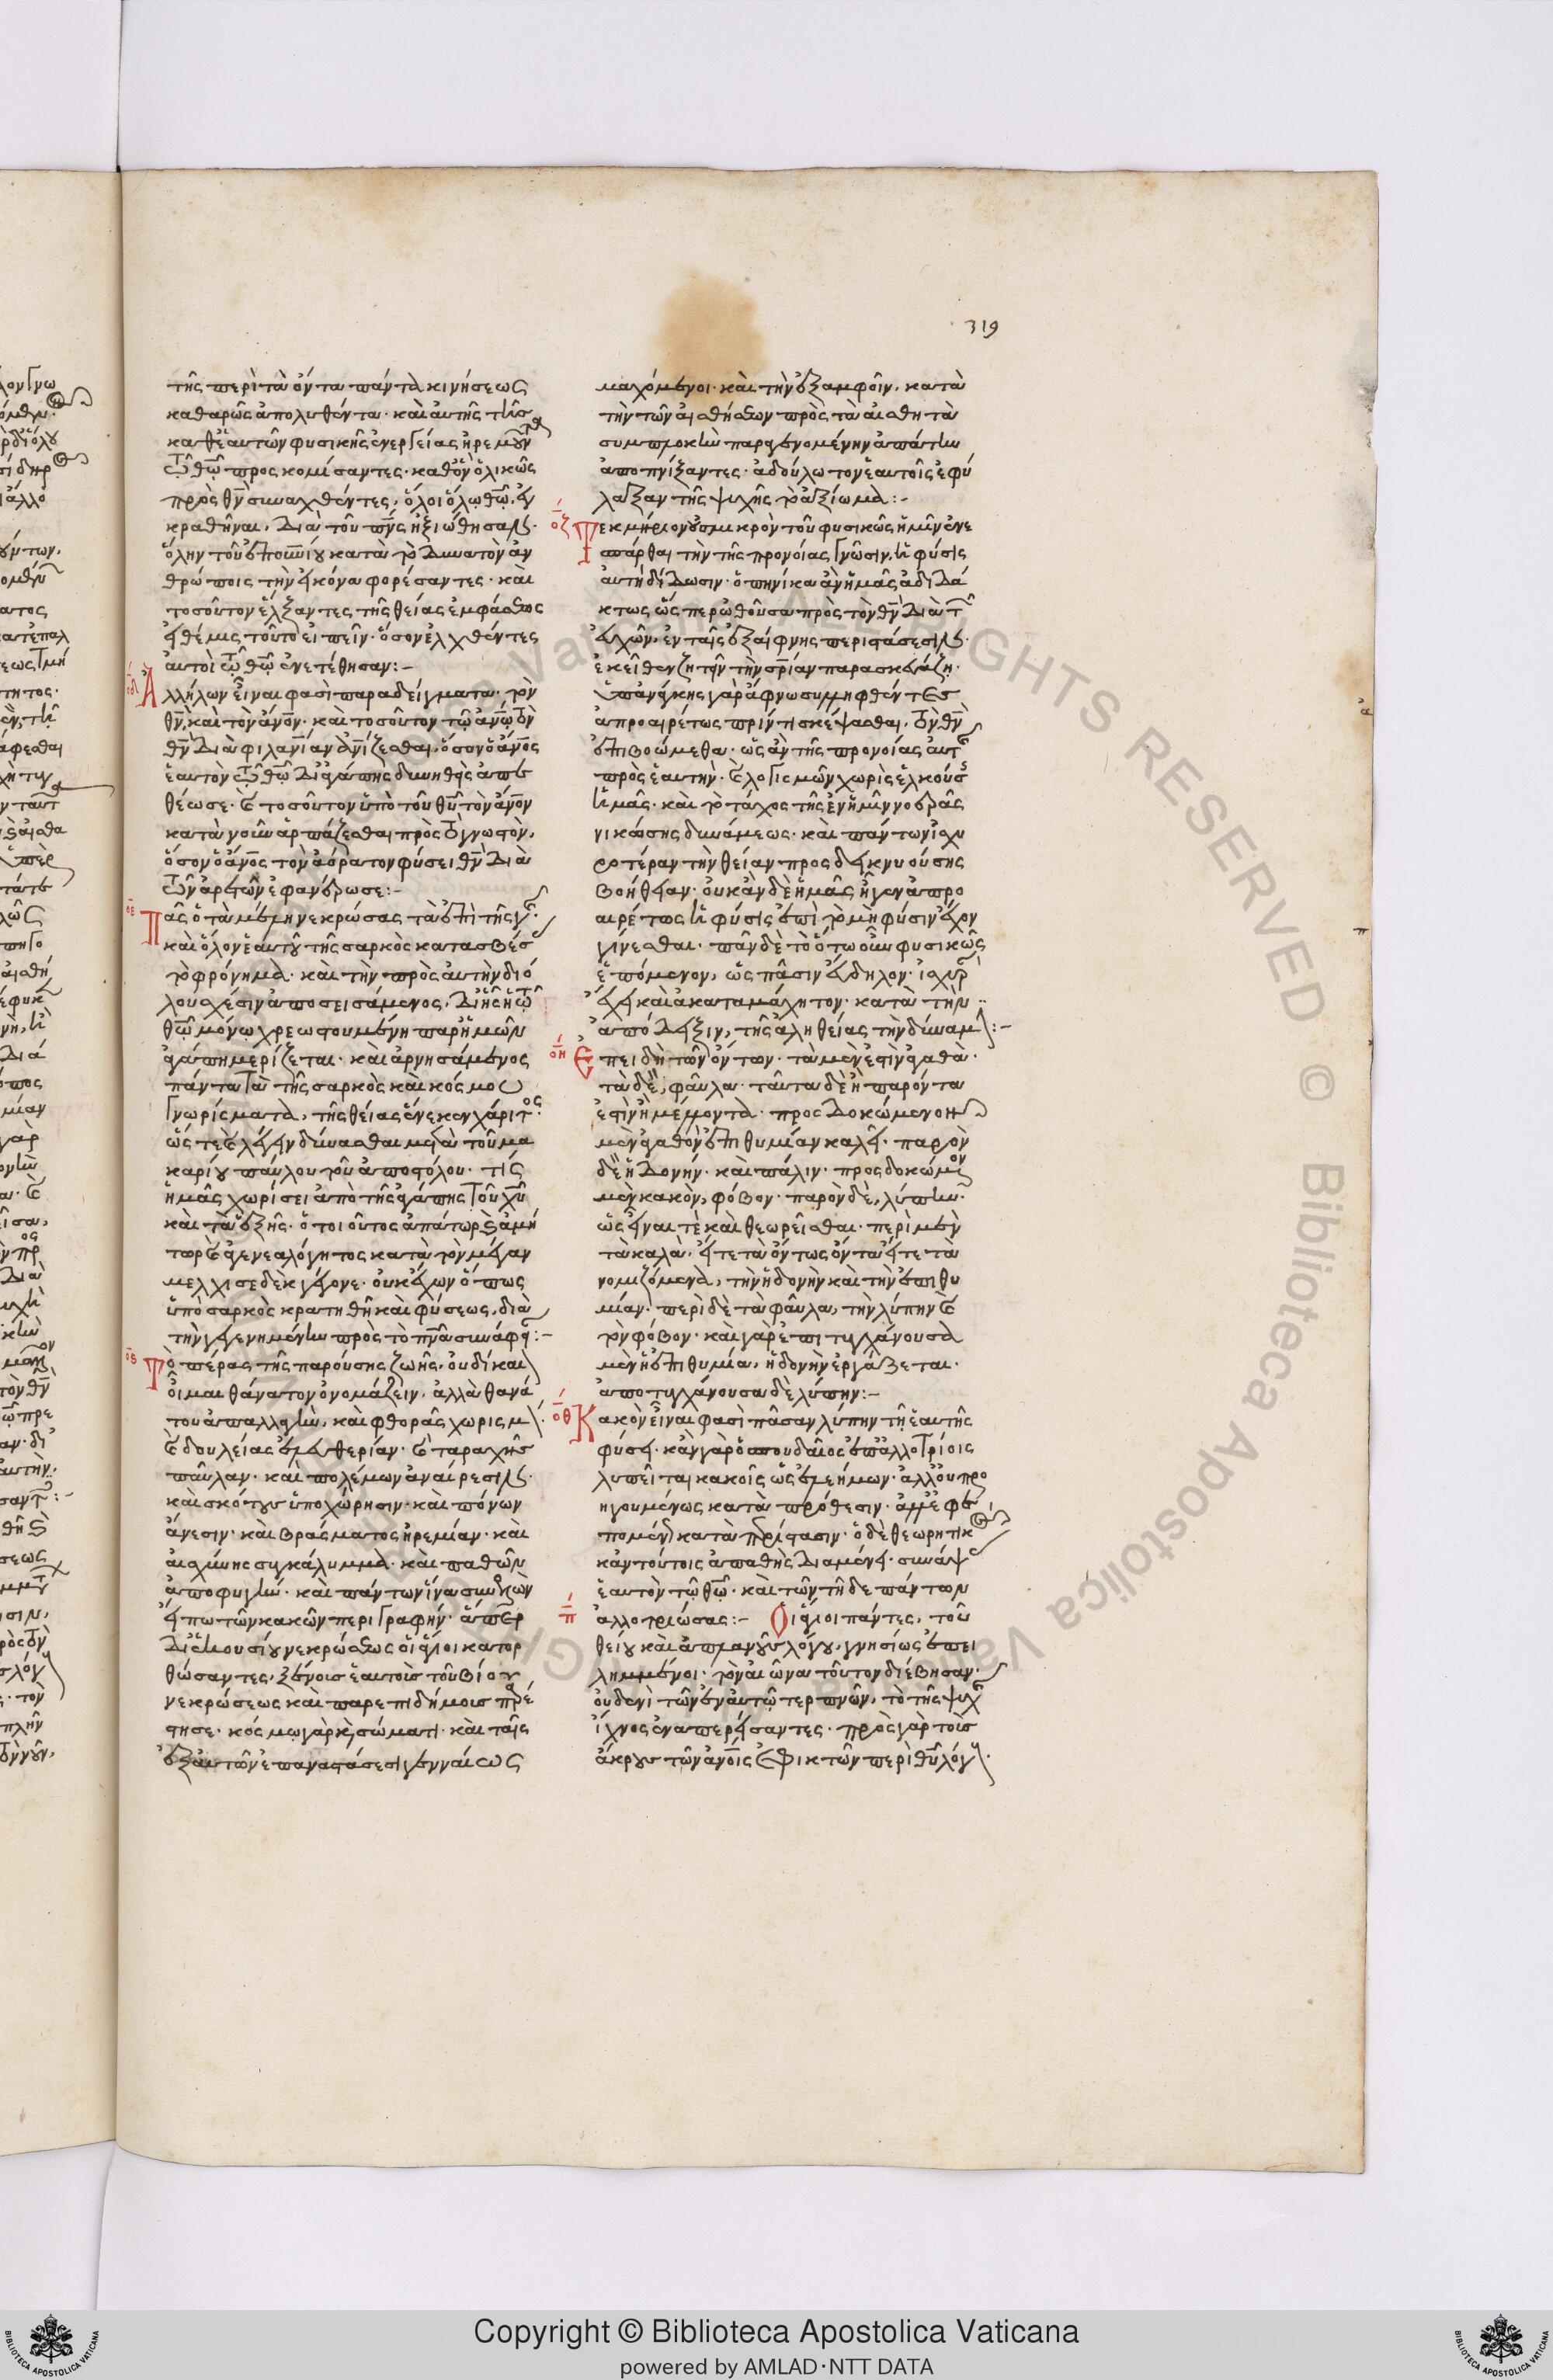 319
τῆς περὶ τὰ ὄντα πάντα κινήσεως
καθαρῶς ἀπολυθέντα· καὶ αὐτῆς τῆς
καθ' ἑαυτῶν φυσικῆς ἐνεργείας ἠρεμοῦντα
τῶ θῶ προσκομίσαντες· καθ' ὃν ὁλικῶς
πρὸς θν συναχθέντες, ὅλοι ὅλω θῶ ἐγ
κραθῆναι, διὰ τοῦ πνς ἠξιώθησαν·
ὅλην τοῦ ἐπουνίου κατὰ τὸ δυνατὸν ἀν
θρώποις τὴν εἰκόνα φορέσαντες· καὶ
τοσοῦτον ἕλξαντες τῆς θείας ἐμφάσεως
εἰ θέμις τοῦτο εἰπεῖν· ὅσον ἑλχθέντες
αὐτοὶ τῶ θῶ ἐνετέθησαν:-
οδ Ἀλλήλων εἶναι φασὶ παραδείγματα· τὸν
θν, καὶ τὸν ἄνον· καὶ τοσοῦτον τῶ ἀνω τὸν
θν διὰ φιλανίαν ἀνίζεσθαι, ὅσον ὁ ἄνος
ἑαυτὸν τῶ θῶ δι' ἀγάπης δυνηθεὶς ἀπε
θέωσε· καὶ τοσοῦτον ὑπὸ τοῦ θυ τὸν ἄνον
κατὰ νοῦν ἁρπάζεσθαι πρὸς τὸ γνωστὸν,
ὅσον ὁ ἄνος τὸν ἀόρατον φύσει θν διὰ
τῶν ἀρετῶν ἐφανέρωσε:-
οε Πᾶς ὁ τὰ μέλη νεκρώσας τὰ ἐπὶ τῆς γῆς·
καὶ ὅλον ἑαυτοῦ τῆς σαρκὸς κατασβέσας
τὸ φρόνημα· καὶ τὴν πρὸς αὐτὴν διό
λου σχέσιν ἀποσεισάμενος, δι' ἧς ἡ τῶ
θῶ μόνω χρεωστουμένη παρ' ἡμῶν
ἀγάπη μερίζεται· καὶ ἀρνησάμενος
πάντα τὰ τῆς σαρκὸς καὶ κόσμου
γνωρίσματα, τῆς θείας ἕνεκεν χάριτος·
ὥς τε καὶ λέγειν δύνασθαι μετὰ τοῦ μα
καρίου παύλου τοῦ ἀποστόλου· τίς
ἡμᾶς χωρίσει ἀπὸ τῆς ἀγάπης τοῦ χυ
καὶ τὰ ἑξῆς· ὁ τοιοῦτος ἀπάτωρ καὶ ἀμή
τωρ καὶ ἀγενεαλόγητος κατὰ τὸν μέγαν
μελχισεδὲκ γέγονε· οὐκ ἔχων ὅπως
ὑπὸ σαρκὸς κρατηθῆ καὶ φύσεως, διὰ
τὴν γεγενημένην πρὸς τὸ πνα συνάφειαν:-
οϛ Τὸ πέρας τῆς παρούσης ζωῆς, οὐ δίκαιον
οἶμαι θάνατον ὀνομάζειν, ἀλλὰ θανά
του ἀπαλλαγὴν, καὶ φθορᾶς χωρισμὸν·
καὶ δουλείας ἐλευθερίαν· καὶ ταραχῆς
παῦλαν· καὶ πολέμων ἀναίρεσιν·
καὶ σκότους ὑποχώρησιν· καὶ πόνων
ἄνεσιν· καὶ βράσματος ἠρεμίαν· καὶ
αἰσχύνης συγκάλυμμα· καὶ παθῶν
ἀποφυγὴν· καὶ πάντων ἵνα συνελὼν
εἴπω τῶν κακῶν περιγραφήν· ἅπερ
δι' ἑκουσίου νεκρώσεως οἱ ἅγιοι κατορ
θώσαντες, ξένους ἑαυτοὺς τοῦ βίου
νεκρώσεως καὶ παρεπιδήμους παρέ
στησαν· κόσμω γὰρ καὶ σώματι· καὶ ταῖς
ἐξ αὐτῶν ἐπαναστάσεσι γενναίως
μαχόμενοι· καὶ τὴν ἐξ ἀμφοῖν, κατὰ
τὴν τῶν αἰσθήσεων πρὸς τὰ αἰσθητὰ
συμπλοκὴν παραγενομένην ἀπάτην
ἀποπνίξαντες· ἀδούλωτον ἑαυτοῖς ἐφύ
λαξαν τῆς ψυχῆς τὸ ἀξίωμα:-
οζ Τεκμήριον οὐ μικρὸν τοῦ φυσικῶς ἡμῖν ἐνε
σπάρθαι τὴν τῆς προνοίας γνῶσιν, ἡ φύσις
αὐτὴ δίδωσιν· ὁπηνίκα ἂν ἡμᾶς ἀδιδά
κτως ὥσπερ ὠθοῦσα πρὸς τὸν θν διὰ τῶν
εὐχῶν, ἐν ταῖς ἐξαίφνης περιστάσεσιν·
ἐκεῖθεν ζητεῖν τὴν σρίαν παρασκευάζη·
ὑπ' ἀνάγκης γὰρ ἄφνω συλληφθέντες
ἀπροαιρέτως πρίν τι σκέψασθαι, τὸν θν
ἐπιβοώμεθα· ὡς ἂν τῆς προνοίας αὐτῆς
πρὸς ἑαυτὴν· καὶ λογισμῶν χωρὶς ἑλκούσης
ἡμᾶς· καὶ τὸ τάχος τῆς ἐν ἡμῖν νοερᾶς
νικώσης δυνάμεως· καὶ πάντων ἰσχυ
ροτέραν τὴν θείαν προσδεικνυούσης
βοήθειαν· οὐκ ἂν δὲ ἡμᾶς ἦγεν ἀπρο
αιρέτως ἡ φύσις ἐπὶ τὸ μὴ φύσιν ἔχον
γίνεσθαι· πᾶν δὲ τὸ ὁτωοῦν φυσικῶς
ἑπόμενον, ὡς πᾶσιν εὔδηλον· ἰσχυρὰν
ἔχει καὶ ἀκαταμάχητον· κατὰ τὴν
ἀπόδειξιν, τῆς ἀληθείας τὴν δύναμιν:-
οη Ἐπειδὴ τῶν ὄντων· τὰ μὲν ἐστὶν ἀγαθὰ·
τὰ δὲ, φαῦλα· ταῦτα δὲ ἢ παρόντα
ἐστὶν ἢ μέλλοντα· προσδοκώμενον
μὲν ἀγαθὸν ἐπιθυμίαν καλεῖ· παρὸν
δὲ ἡδονήν· καὶ πάλιν· προσδοκώμενον
μὲν κακὸν, φόβον· παρὸν δὲ, λύπην·
ὡς εἶναι τὲ καὶ θεωρεῖσθαι· περὶ μὲν
τὰ καλὰ, εἴτε τὰ ὄντως ὄντα εἴτε τὰ
νομιζόμενα, τὴν ἡδονὴν καὶ τὴν ἐπιθυ
μίαν· περὶ δὲ τὰ φαῦλα, τὴν λύπην καὶ
τὸν φόβον· καὶ γὰρ ἐπιτυγχάνουσα
μὲν ἡ ἐπιθυμία, ἡδονὴν ἐργάζεται·
ἀποτυγχάνουσα δὲ λύπην:-
οθ Κακὸν εἶναι φασὶ πᾶσαν λύπην τῆ ἑαυτῆς
φύσει· κἂν γὰρ ὁ σπουδαῖος ἐπ' ἀλλοτρίοις
λυπεῖται κακοῖς ὡς ἐλεήμων· ἀλλ' οὐ προ
ηγουμένως κατὰ πρόθεσιν· ἀλλ' ἐφε
πομένως κατὰ περίστασιν· ὁ δὲ θεωρητικὸς
κἀν τούτοις ἀπαθὴς διαμένει· συνάψας
ἑαυτὸν τῶ θῶ· καὶ τῶν τῆδε πάντων
π ἀλλοτριώσας:- Οἱ ἅγιοι πάντες, τοῦ
θείου καὶ ἀπλανοῦς λόγου, γνησίως ἐπει
λημμένοι· τὸν αἰῶνα τοῦτον διέβησαν·
οὐδενὶ τῶν ἐν αὐτῶ τερπνῶν, τὸ τῆς ψυχῆς
ἴχνος ἐναπερείσαντες· πρὸς γὰρ τοὺς
ἄκρους τῶν ἀνοις ἐφικτῶν περὶ θυ λόγους·
Copyright © Biblioteca Apostolica Vaticana
powered by AMLAD·NTT DATA